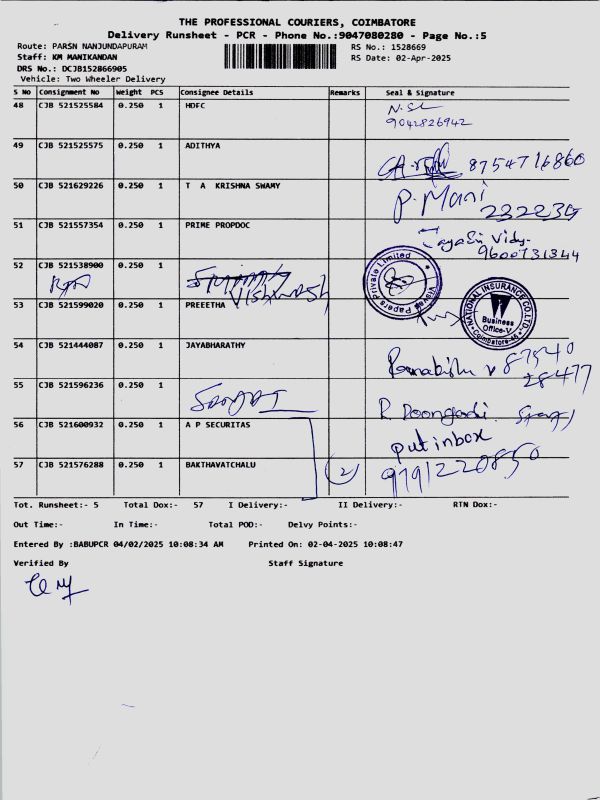 THE PROFESSIONAL COURIERS, COIMBATORE
Delivery Runsheet - PCR - Phone No.:9047080280 - Page No.:5
Route: PARSN NANJUNDAPURAM RS No.: 1528669
Staff: KM MANIKANDAN RS Date: 02-Apr-2025
DRS No.: DCJB152866905
Vehicle: Two Wheeler Delivery
S No Consignment No Weight PCS Consignee Details Remarks Seal & Signature
48 CJB 521525584 0.250 1 HDFC
9042826942
49 CJB 521525575 0.250 1 ADITHYA
8754716860
50 CJB 521629226 0.250 1 T A KRISHNA SWAMY P. Mani
232234
51 CJB 521557354 0.250 1 PRIME PROPDOC
9600731344
52 CJB 521538900 0.250 1
Papers Private Limited
53 CJB 521599020 0.250 1 PREEETHA
NATIONAL INSURANCE CO.LTD.
Business
Office-V
Coimbatore-45
54 CJB 521444087 0.250 1 JAYABHARATHY
87540
28477
55 CJB 521596236 0.250 1
R. Doongadi
56 CJB 521600932 0.250 1 A P SECURITAS
put inbox
57 CJB 521576288 0.250 1 BAKTHAVATCHALU 2 9791220850
Tot. Runsheet:- 5 Total Dox:- 57 I Delivery:- II Delivery:- RTN Dox:-
Out Time:- In Time:- Total POD:- Delvy Points:-
Entered By :BABUPCR 04/02/2025 10:08:34 AM Printed On: 02-04-2025 10:08:47
Verified By Staff Signature